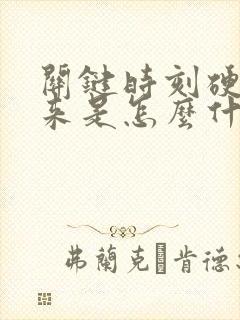 關鍵時刻硬
來是怎麼什
弗蘭克 肯德